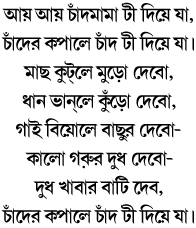 আয় আয় চাঁদমামা টী দিয়ে যা,
চাঁদের কপালে চাঁদ টী দিয়ে যা।
মাছ কুট্‌লে মুড়ো দেবো,
ধান ভান্‌লে কুঁড়ো দেবো,
গাই বিয়োলে বাছুর দেবো-
কালো গরুর দুধ দেবো-
দুধ খাবার বাটি দেব,
চাঁদের কপালে চাঁদ টী দিয়ে যা।